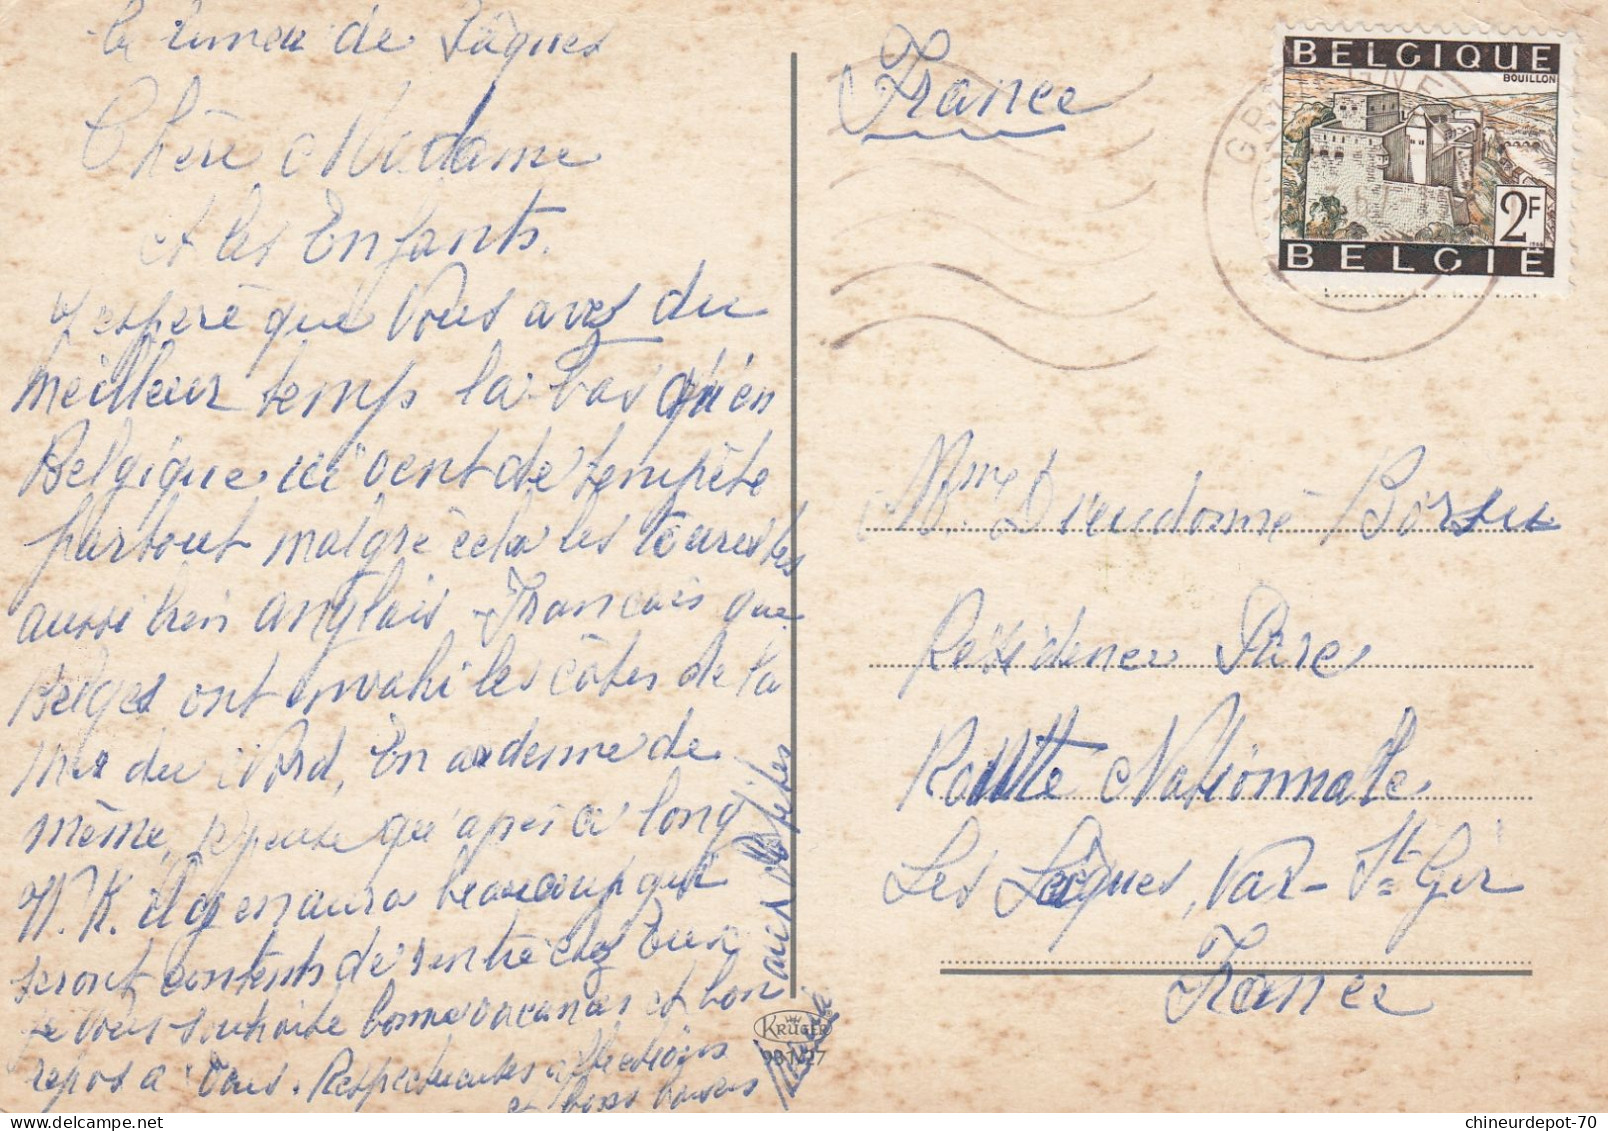 de Pâques
Chère Madame
et les Enfants.
J'espère que Vous avez du
meilleur temps la-bas qu'en
Belgique ici vent de tempête
partout malgré cela les touristes
aussi bien anglais Francais que
Belges ont envahi les côtes de la
Mer du Nord, En ardenne de
même, je pense qu'après ce long
W.K. il y en aura beaucoup qui
seront contents de rentre chez Eux
je Vous souhaite bonne vacances et bon
repos a Vous. Respectueuses affections
et bons baisers
aux petites
France
BELGIQUE
BOUILLON
2F
1966
BELGIË
Mme Dieudonné Borsu
Residence Pare
Route Nationnale
Les Lèques, Var - St Cyr
France
KRÜGER